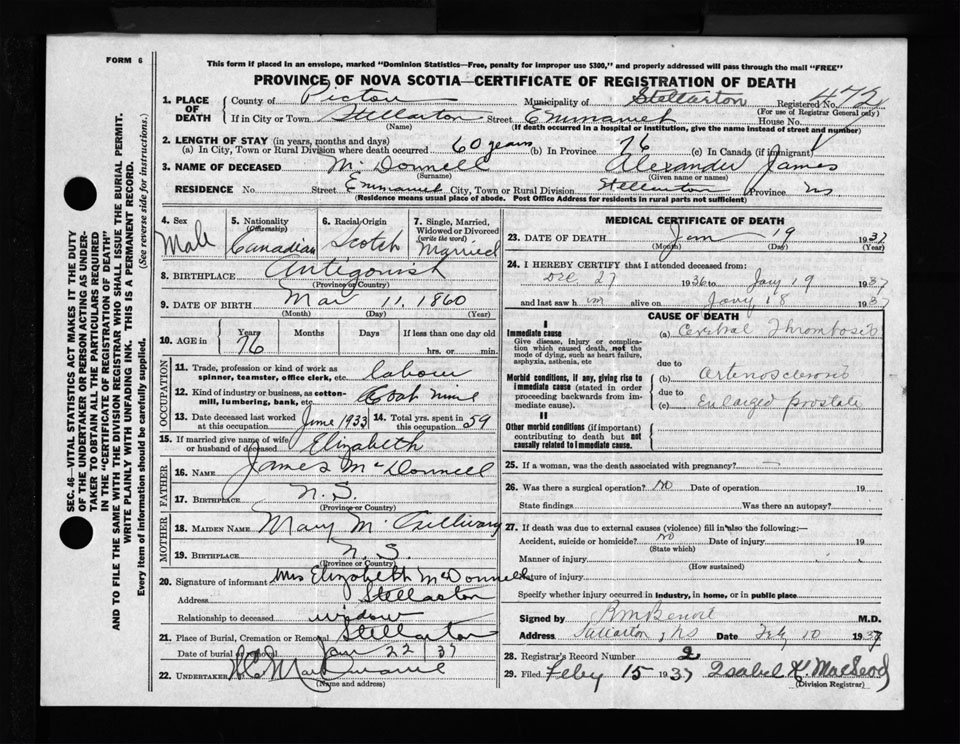 FORM 6
This form if placed in an envelope, marked "Dominion Statistics—Free, penalty for improper use $300," and properly addressed will pass through the mail "FREE"
PROVINCE OF NOVA SCOTIA—CERTIFICATE OF REGISTRATION OF DEATH
SEC. 46—VITAL STATISTICS ACT MAKES IT THE DUTY
OF THE UNDERTAKER OR PERSON ACTING AS UNDER-
TAKER TO OBTAIN ALL THE PARTICULARS REQUIRED
IN THE "CERTIFICATE OF REGISTRATION OF DEATH"
AND TO FILE THE SAME WITH THE DIVISION REGISTRAR WHO SHALL ISSUE THE BURIAL PERMIT.
WRITE PLAINLY WITH UNFADING INK. THIS IS A PERMANENT RECORD.
Every item of information should be carefully supplied. (See reverse side for instructions.)
1. PLACE OF DEATH County of Pictou Municipality of Stellarton Registered No. 472
(For use of Registrar General only)
If in City or Town Stellarton Street House No.
(Name) (If death occurred in a hospital or institution, give the name instead of street and number)
2. LENGTH OF STAY (in years, months and days)
(a) In City, Town or Rural Division where death occurred 60 years (b) In Province 76 (c) In Canada (if immigrant)
3. NAME OF DECEASED McDonnell Alexander James
(Surname) (Given name or names)
RESIDENCE No. Street City, Town or Rural Division Stellarton Province NS
(Residence means usual place of abode. Post Office Address for residents in rural parts not sufficient)
4. Sex Male
5. Nationality (Citizenship) Canadian
6. Racial Origin Scotch
7. Single, Married, Widowed or Divorced (write the word) Married
8. BIRTHPLACE Antigonish
(Province or Country)
9. DATE OF BIRTH Mar 11, 1860
(Month) (Day) (Year)
10. AGE in Years 76 Months Days If less than one day old
hrs. or min.
OCCUPATION
11. Trade, profession or kind of work as
spinner, teamster, office clerk, etc. labour
12. Kind of industry or business, as cotton-
mill, lumbering, bank, etc. Coal mine
13. Date deceased last worked at this occupation June 1933 14. Total yrs. spent in this occupation 59
15. If married give name of wife
or husband of deceased Elizabeth
FATHER
16. NAME James McDonnell
17. BIRTHPLACE N.S.
(Province or Country)
MOTHER
18. MAIDEN NAME Mary McGillivary
19. BIRTHPLACE N.S.
(Province or Country)
20. Signature of informant Mrs Elizabeth McDonnell
Address Stellarton
Relationship to deceased widow
21. Place of Burial, Cremation or Removal Stellarton
Date of burial or removal Jan 22/37
22. UNDERTAKER
(Name and address)
MEDICAL CERTIFICATE OF DEATH
23. DATE OF DEATH Jan 19 1937
(Month) (Day) (Year)
24. I HEREBY CERTIFY that I attended deceased from:
Dec 27 1936 to Jany 19 1937
and last saw h im alive on Jany 18 1937
CAUSE OF DEATH
I
Immediate cause (a) Cerebral Thrombosis
Give disease, injury or complica-
tion which caused death, not the
mode of dying, such as heart failure,
asphyxia, asthenia, etc
due to
Morbid conditions, if any, giving rise to
immediate cause (stated in order
proceeding backwards from im-
mediate cause).
(b) Arteriosclerosis
due to
(c) Enlarged prostate
II
Other morbid conditions (if important)
contributing to death but not
causally related to immediate cause.
25. If a woman, was the death associated with pregnancy? —
26. Was there a surgical operation? No Date of operation 19
State findings Was there an autopsy?
27. If death was due to external causes (violence) fill in also the following:—
Accident, suicide or homicide? No Date of injury 19
(State which)
Manner of injury
(How sustained)
Nature of injury
Specify whether injury occurred in industry, in home, or in public place
Signed by M.D.
Address Stellarton, NS Date Feby 10 1937
28. Registrar's Record Number 2
29. Filed Feby 15 1937 Isabel K. MacLeod
(Division Registrar)